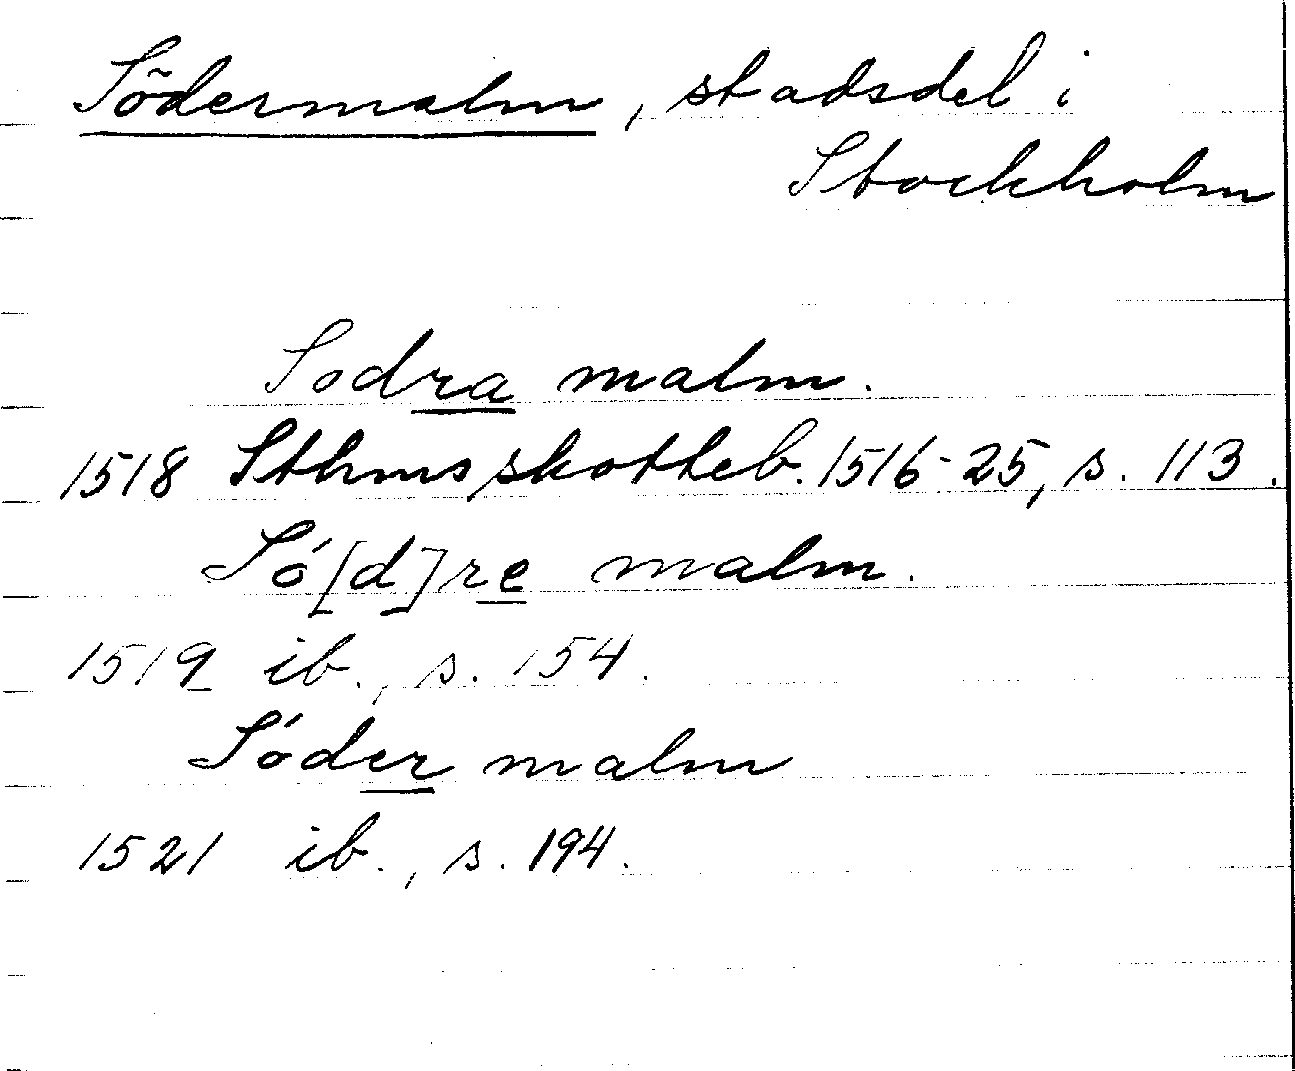 Södermalm, stadsdel i
Stockholm
Sodra malm.
1518 Sthms skotteb. 1516-25, s. 113.
Só[d]re malm.
1519 ib., s. 154.
Sóder malm
1521 ib., s. 194.